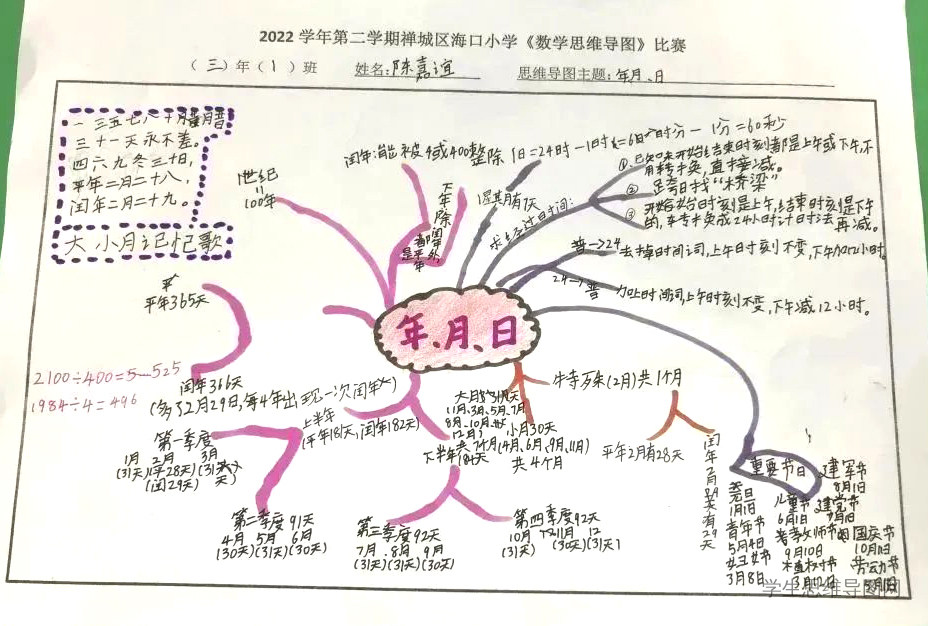 2022 学年第二学期禅城区海口小学《数学思维导图》比赛
（三）年（1）班 姓名:陈嘉谊 思维导图主题:年、月、日
一三五七八十月腊
三十一天永不差。
四六九冬三十日,
平年二月二十八,
闰年二月二十九。
大小月记忆歌
世纪
=
100年
闰年:能被4或400整除
下年除闰年外,都是平年
星其月有7天
1日=24时 1时=60分 1分=60秒
求经过时间:
① 开始结束时刻都是上午或下午,不用转换,直接减。
② 跨日找“桥梁”
③ 开始时刻是上午,结束时刻是下午的,转换成24小时计时法再减。
普→24 去掉时间词,上午日时刻不变,下午加12小时。
24→普 加上时间词,上午时刻不变,下午减12小时。
年、月、日
平年365天
闰年366天
(多了2月29日,每4年出现一次闰年)
2100÷400=5…525
1984÷4=496
上半年
(平年181天,闰年182天)
下半年184天
第一季度
1月 2月 3月
(31天)(平28天)(31天)
(闰29天)
第二季度 91天
4月 5月 6月
(30天)(31天)(30天)
第三季度92天
7月 8月 9月
(31天)(31天)(30天)
第四季度92天
10月 11月 12
(31天) (30天)(31天)
大月 31天
1月、3月、5月、7月
8月、10月
12月
共7个月
小月30天
(4月、6月、9月、11月)
共4个月
牛寺万朱(2月)共1个月
平年2月有28天
闰年2月有29天
重要节日
元旦
1月1日
青年节
5月4日
妇女节
3月8日
儿童节
6月1日
教师节
9月10日
植树节
3月12日
建军节
8月1日
建党节
7月1日
国庆节
10月1日
劳动节
5月1日
学生思维导图网